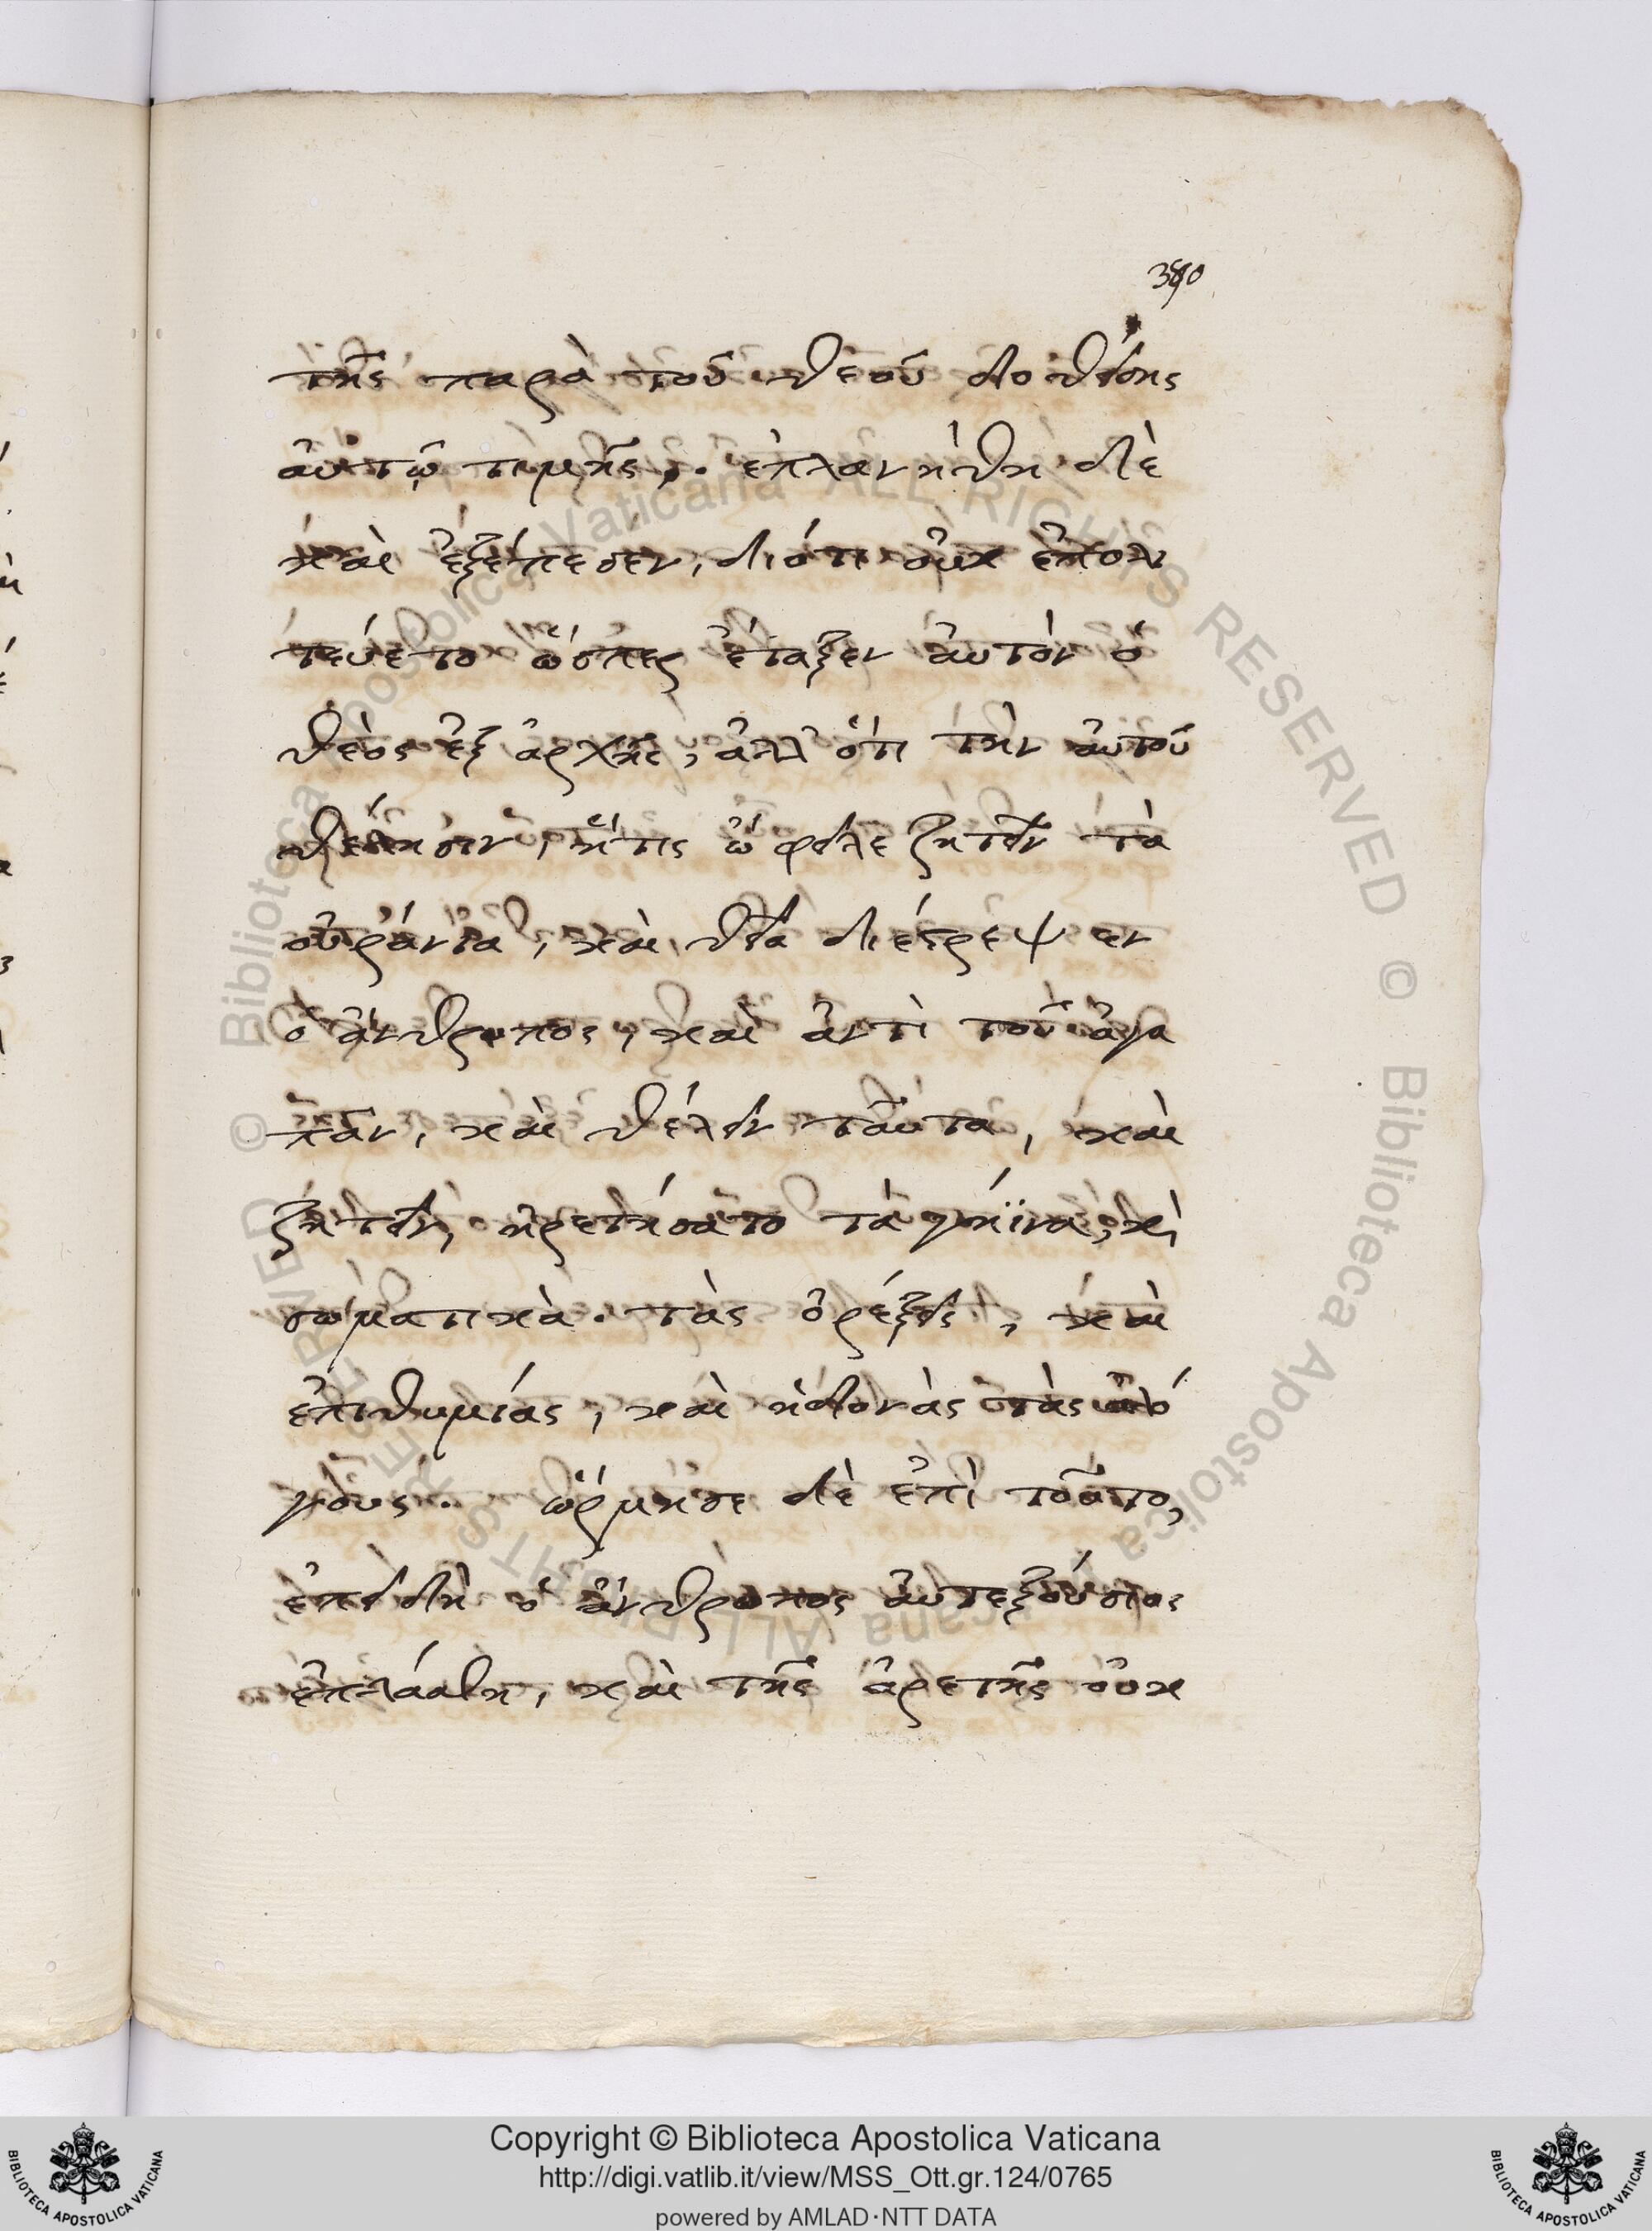 380
τῆς παρὰ τοῦ θεοῦ δοθείσης
αὐτῷ τιμῆς. ἐπλανήθη δὲ
καὶ ἐξέπεσεν, διότι οὐκ ἐπολι
τεύετο ὥσπερ ἔταξεν αὐτὸν ὁ
θεὸς ἐξ ἀρχῆς, ἀλλ' ὅτι τὴν αὐτοῦ
θέλησιν, ἥτις ὤφειλε ζητεῖν τὰ
οὐράνια, καὶ θεῖα διέστρεψεν
ὁ ἄνθρωπος, καὶ ἀντὶ τοῦ ἀγα
πᾶν, καὶ θέλειν ταῦτα, καὶ
ζητεῖν, ᾑρετήσατο τὰ γήϊνα, κὶ
σωματικὰ. τὰς ὀρέξεις, καὶ
ἐπιθυμίας, καὶ ἡδονὰς τὰς ἀλό
γους. ὥρμησε δὲ ἐπὶ τοῦτο,
ἐπειδὴ ὁ ἄνθρωπος αὐτεξούσιος
ἐπλάσθη, καὶ τῆς ἀρετῆς οὐκ
© Biblioteca Apostolica Vaticana ALL RIGHTS RESERVED © Biblioteca Apostolica Vaticana ALL RIGHTS RESERVED
BIBLIOTECA APOSTOLICA VATICANA
Copyright © Biblioteca Apostolica Vaticana
http://digi.vatlib.it/view/MSS_Ott.gr.124/0765
powered by AMLAD·NTT DATA
BIBLIOTECA APOSTOLICA VATICANA